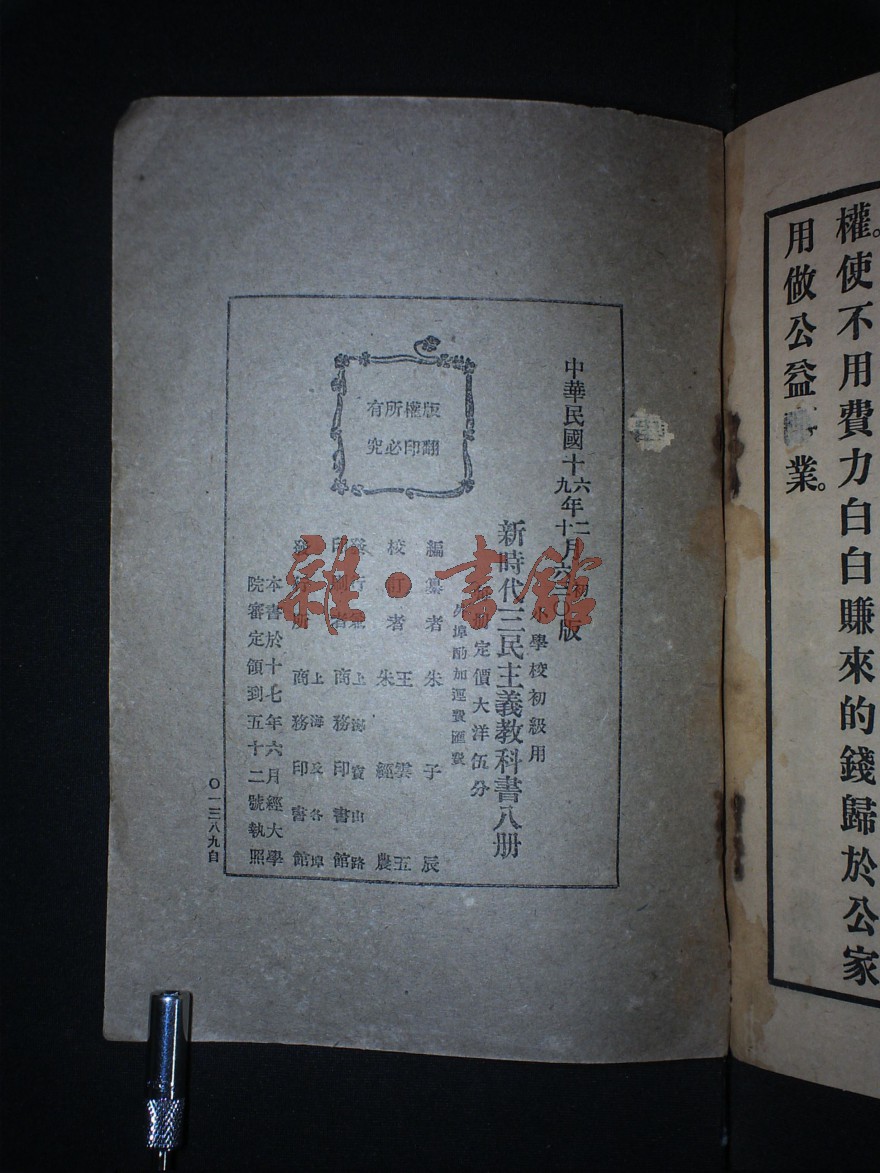 權。使不用費力白白賺來的錢歸於公家
用做公益業。
中華民國十六年二月初版
十九年十月六三〇版
小學校初級用
新時代三民主義教科書八册
每册定價大洋伍分
外埠酌加運費匯費
版權所有
翻印必究
編纂者 朱子辰
校訂者 王雲五
朱經農
發行兼印刷者 上海寶山路
商務印書館
發行所 上海及各埠
商務印書館
本書於十七年六月經大學
院審定領到五十二號執照
〇一三八九自
雜·書館